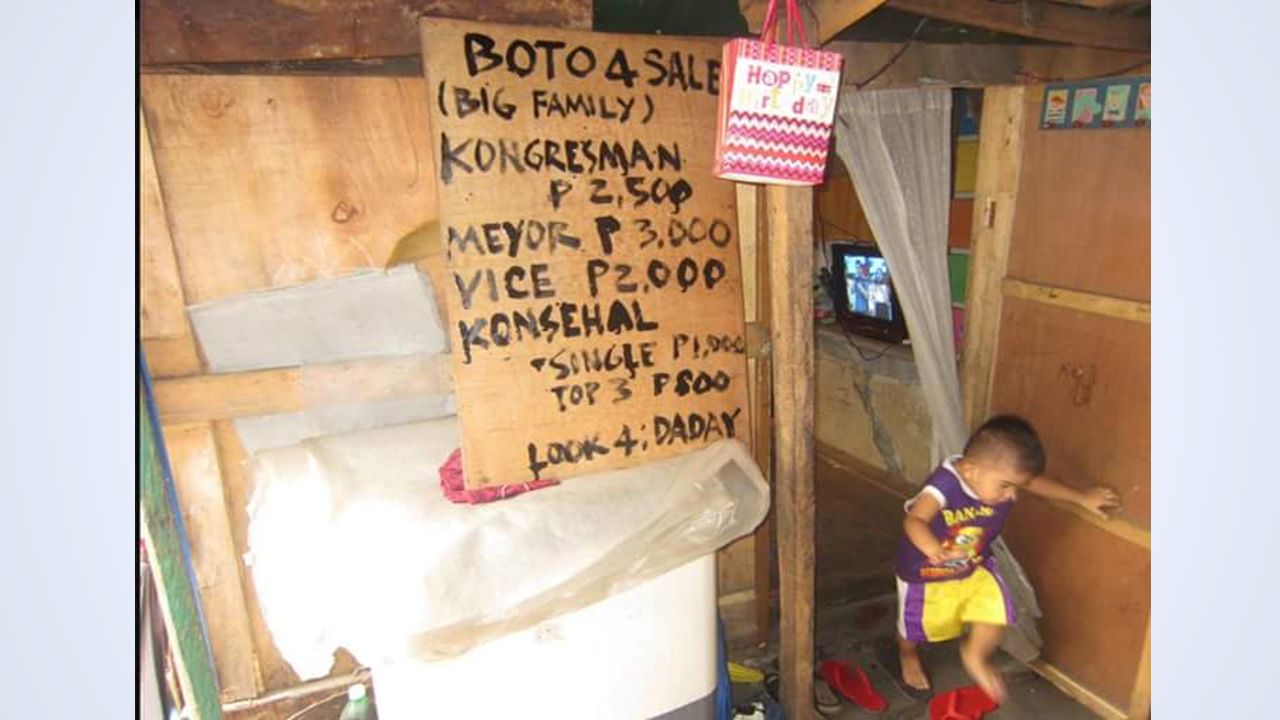 BOTO 4 SALE
(BIG FAMILY)
KONGRESMAN
P 2,500
MEYOR P 3,000
VICE P2,000
KONSEHAL
-SINGLE P1,000
TOP 3 P800
LOOK 4: DADAY
HAPPY
BirthdAy